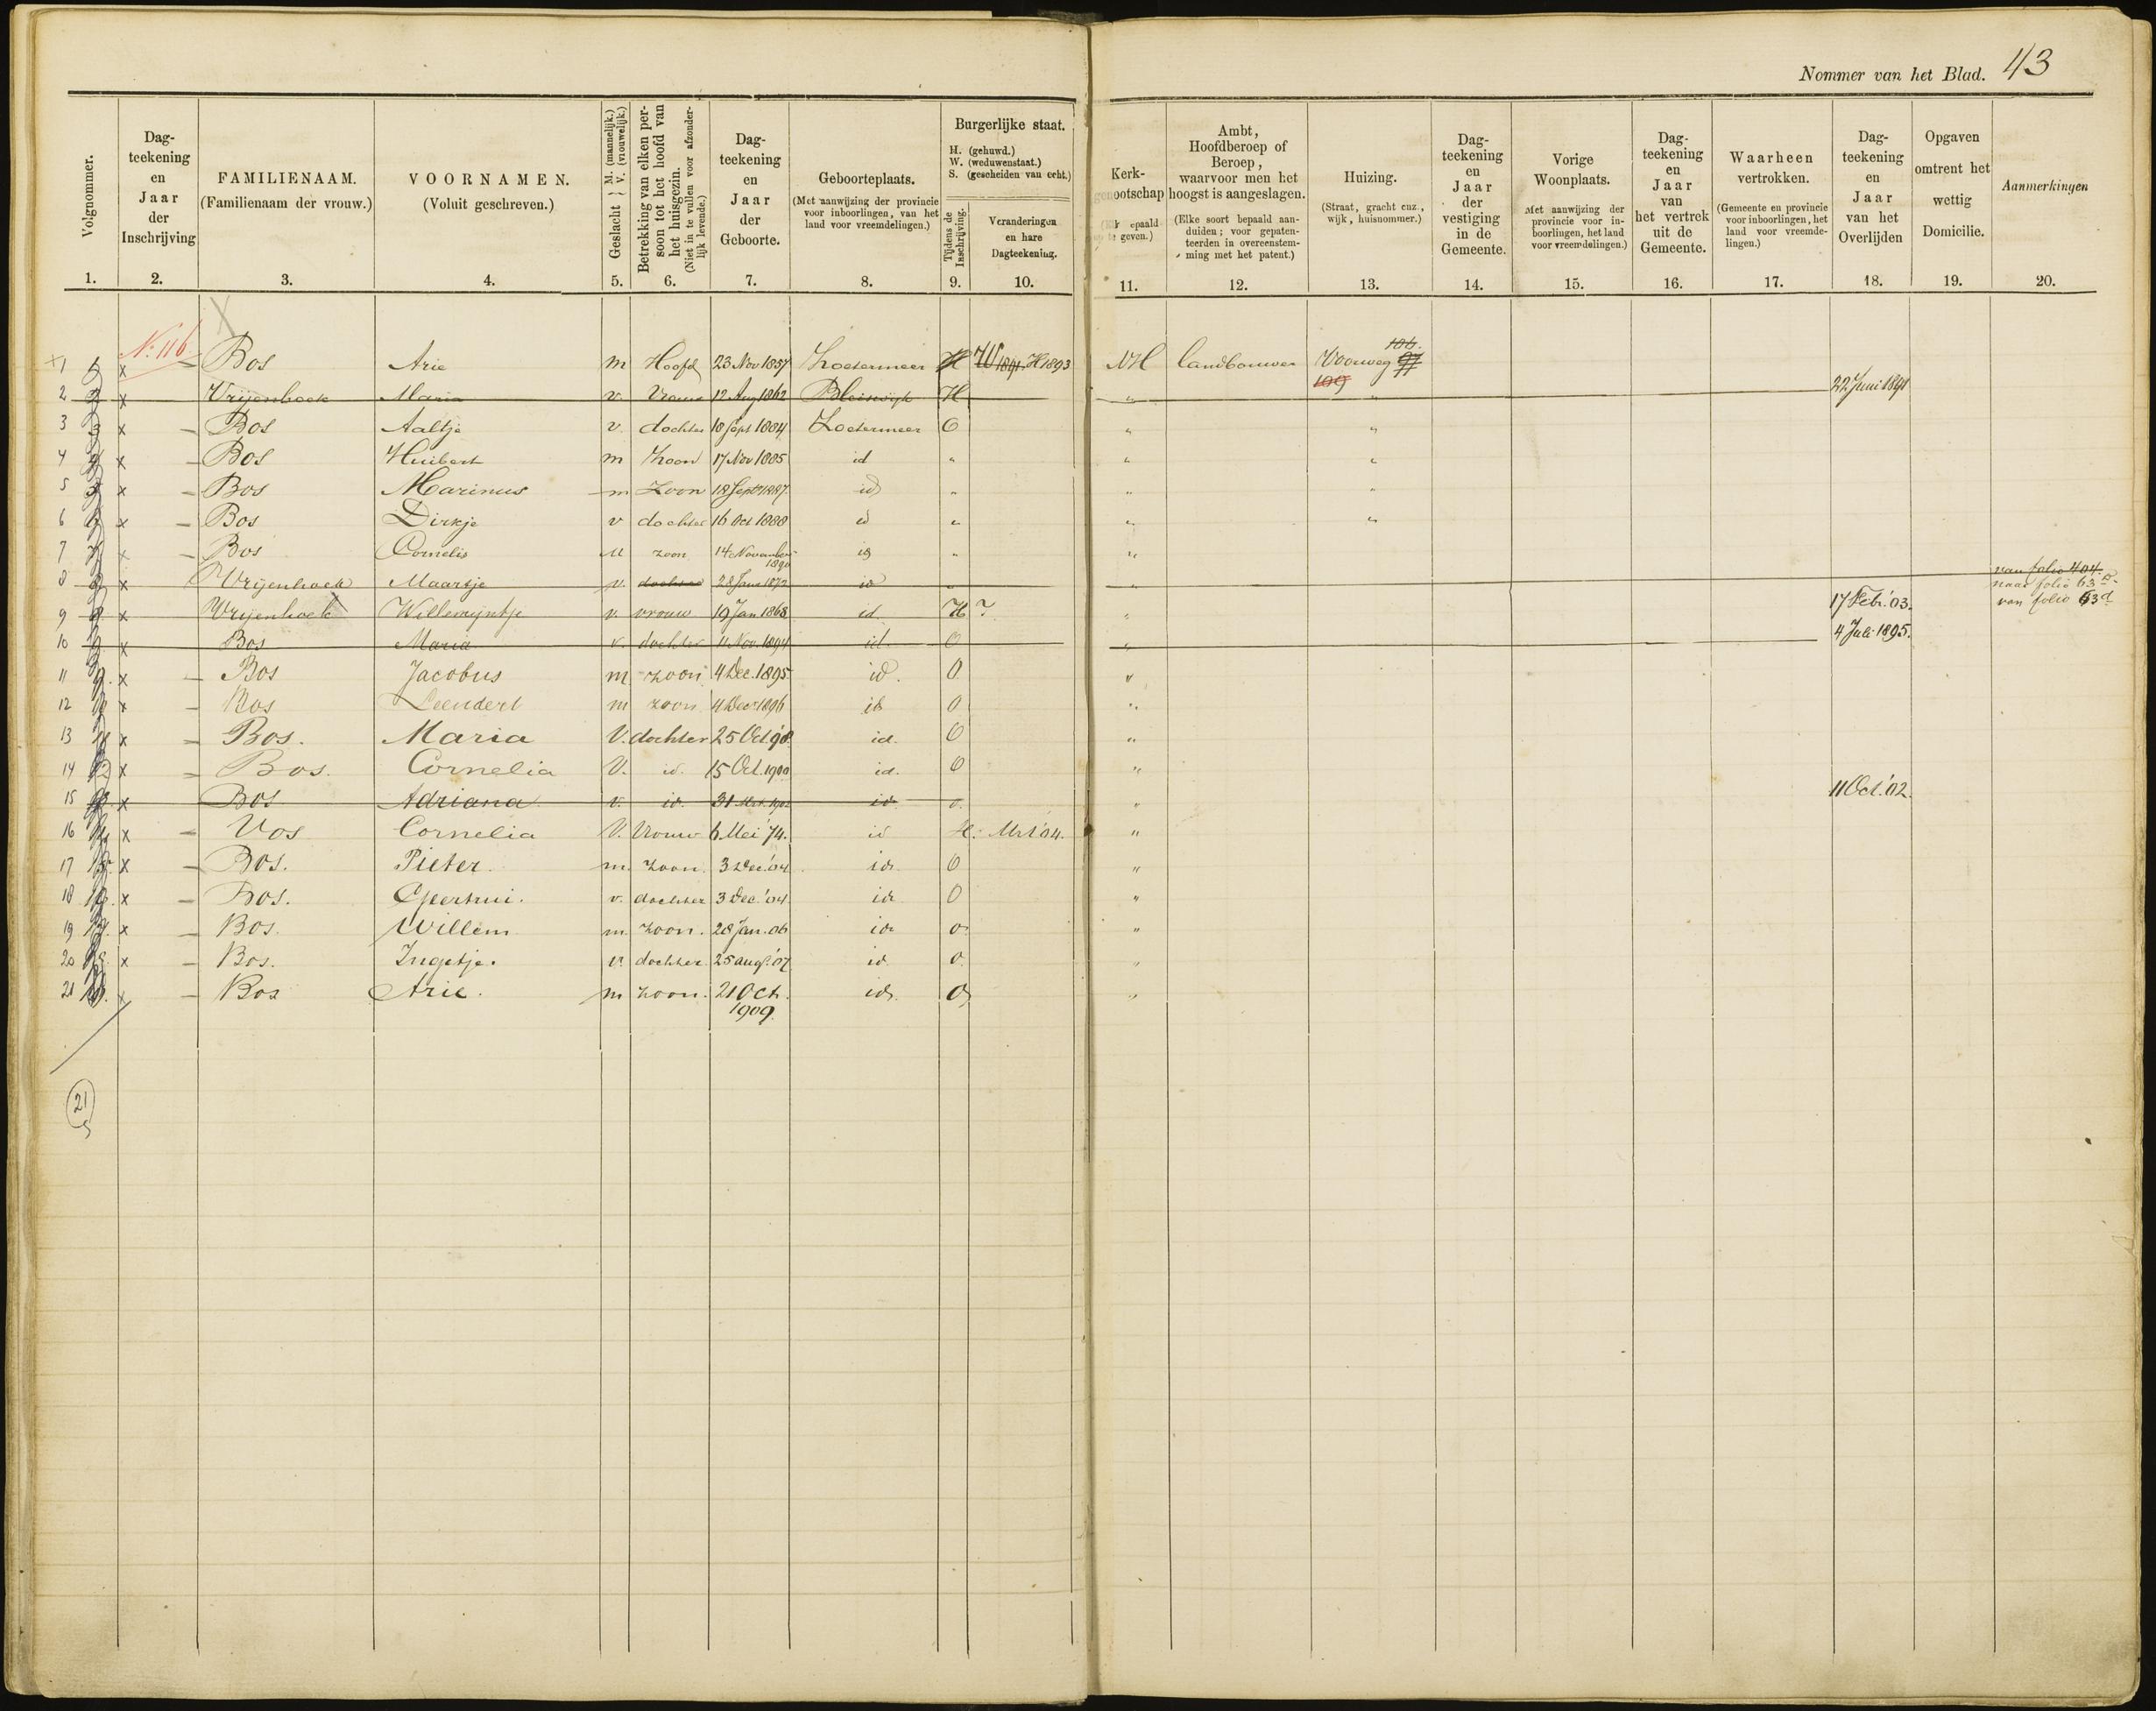 Nommer van het Blad. 43
Volgnommer.
Dagteekening en Jaar der Inschrijving
FAMILIENAAM. (Familienaam der vrouw.)
VOORNAMEN. (Voluit geschreven.)
Geslacht } M. (mannelijk.) V. (vrouwelijk.)
Betrekking van elken persoon tot het hoofd van het huisgezin. (Niet in te vullen voor afzonderlijk levende.)
Dagteekening en Jaar der Geboorte.
Geboorteplaats. (Met aanwijzing der provincie voor inboorlingen, van het land voor vreemdelingen.)
Burgerlijke staat.
H. (gehuwd.)
W. (weduwenstaat.)
S. (gescheiden van echt.)
Tijdens de Inschrijving.
Veranderingen en hare Dagteekening.
Kerk-ootschap epaald geven.)
Ambt, Hoofdberoep of Beroep, waarvoor men het hoogst is aangeslagen. (Elke soort bepaald aanduiden; voor gepatenteerden in overeenstemming met het patent.)
Huizing. (Straat, gracht enz., wijk, huisnommer.)
Dagteekening en Jaar der vestiging in de Gemeente.
Vorige Woonplaats. Met aanwijzing der provincie voor inboorlingen, het land voor vreemdelingen.)
Dagteekening en Jaar van het vertrek uit de Gemeente.
Waarheen vertrokken. (Gemeente en provincie voor inboorlingen, het land voor vreemdelingen.)
Dagteekening en Jaar van het Overlijden
Opgaven omtrent het wettig Domicilie.
Aanmerkingen
1. 2. 3. 4. 5. 6. 7. 8. 9. 10. 11. 12. 13. 14. 15. 16. 17. 18. 19. 20.
No. 116
1 x Bos Arie m Hoofd 23 Nov 1857 Zoetermeer H W 1891 H 1893 NH landbouwer Voorweg 97 106. 109
2 x Vrijenhoek Maria v. Vrouw 12 Aug 1862 Bleiswijk H " " 22 Juni 1891
3 x Bos Aaltje v. dochter 18 Sept 1884 Zoetermeer O " "
4 x Bos Huibert m Zoon 17 Nov 1885 id " " "
5 x Bos Marinus m Zoon 18 Sept 1887 id " " "
6 x Bos Dirkje v dochter 16 Oct 1888 id " " "
7 x Bos Cornelis M zoon 14 November 1890 id " "
8 x Vrijenhoek Maartje v. dochter 28 Jan 1872 id " " van folio 404. naar folio 63d.
9 x Vrijenhoek Willemijntje v. vrouw 19 Jan 1868 id. H ? " 17 Febr. '03. van folio 63d
10 x Bos Maria v. dochter 4 Nov. 1894 id. O " 4 Juli 1895.
11 x Bos Jacobus m zoon 4 Dec. 1895 id. O "
12 x Bos Leendert m zoon 4 Dec 1896 id O "
13 x Bos. Maria V. dochter 25 Oct '98. id. O "
14 x Bos. Cornelia V. id. 15 Oct. 1900 id. O "
15 x Bos Adriana v. id. 31 id. o. " 11 Oct. '02.
16 x Vos Cornelia V. Vrouw 6 Mei '74. id H. Mrt '04. "
17 x Bos. Pieter. m. zoon. 3 Dec. '04 id. O "
18 x Bos. Geertrui. v. dochter 3 Dec. '04 id. O "
19 x Bos. Willem m. zoon. 28 Jan. 06 id o. "
20 x Bos. Ingetje. v. dochter 25 aug. '07 id. o. "
21 x Bos Arie. m zoon. 21 Oct. 1909. id. O "
21